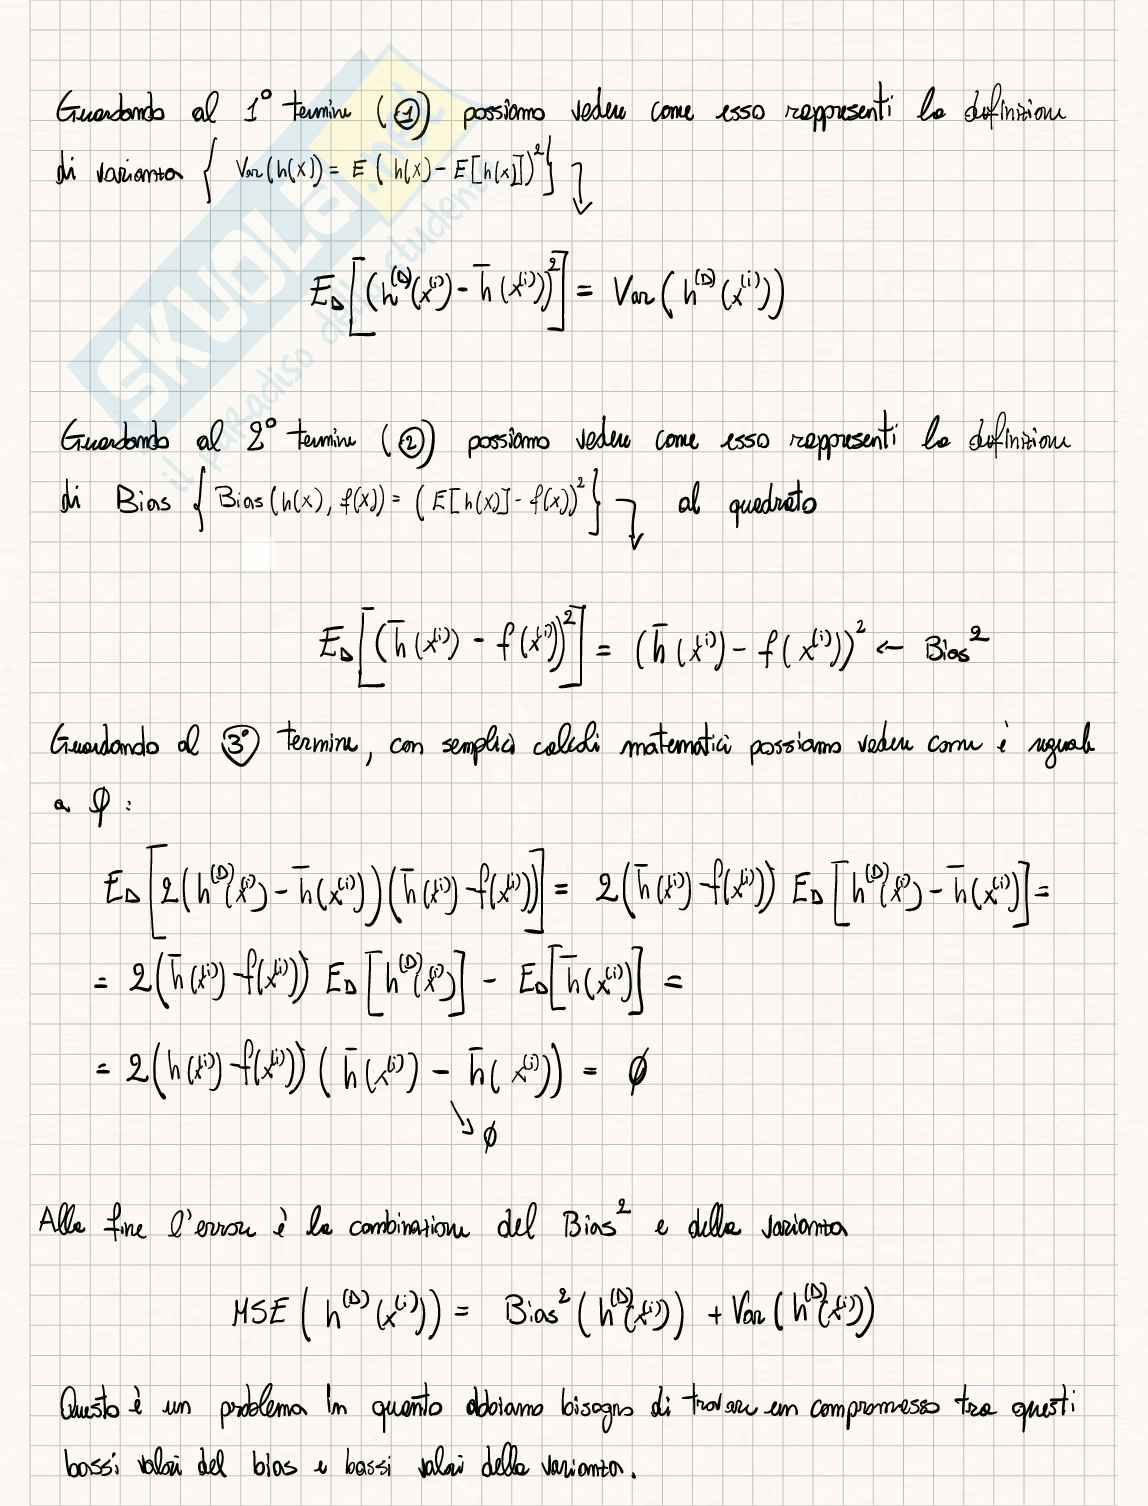 Guardando al 1° termine (①) possiamo vedere come esso rappresenti la definizione
di varianza { Var(h(x)) = E (h(x) - E[h(x)])² }
E_D[(h^(D)(x^(i)) - h̄(x^(i)))²] = Var(h^(D)(x^(i)))
Guardando al 2° termine (②) possiamo vedere come esso rappresenti la definizione
di Bias { Bias(h(x), f(x)) = (E[h(x)] - f(x))² } al quadrato
E_D[(h̄(x^(i)) - f(x^(i)))²] = (h̄(x^(i)) - f(x^(i)))² ← Bias²
Guardando al 3° termine, con semplici calcoli matematici possiamo vedere come è uguale
a φ :
E_D[2(h^(D)(x^(i)) - h̄(x^(i)))(h̄(x^(i)) - f(x^(i)))] = 2(h̄(x^(i)) - f(x^(i))) E_D[h^(D)(x^(i)) - h̄(x^(i))] =
= 2(h̄(x^(i)) - f(x^(i))) E_D[h^(D)(x^(i))] - E_D[h̄(x^(i))] =
= 2(h(x^(i)) - f(x^(i))) (h̄(x^(i)) - h̄(x^(i))) = ∅
↘ ∅
Alla fine l'errore è la combinazione del Bias² e della varianza
MSE(h^(D)(x^(i))) = Bias²(h^(D)(x^(i))) + Var(h^(D)(x^(i)))
Questo è un problema in quanto abbiamo bisogno di trovare un compromesso tra questi
bassi valori del bias e bassi valori della varianza.
SKUOLA.net
il paradiso dello studente